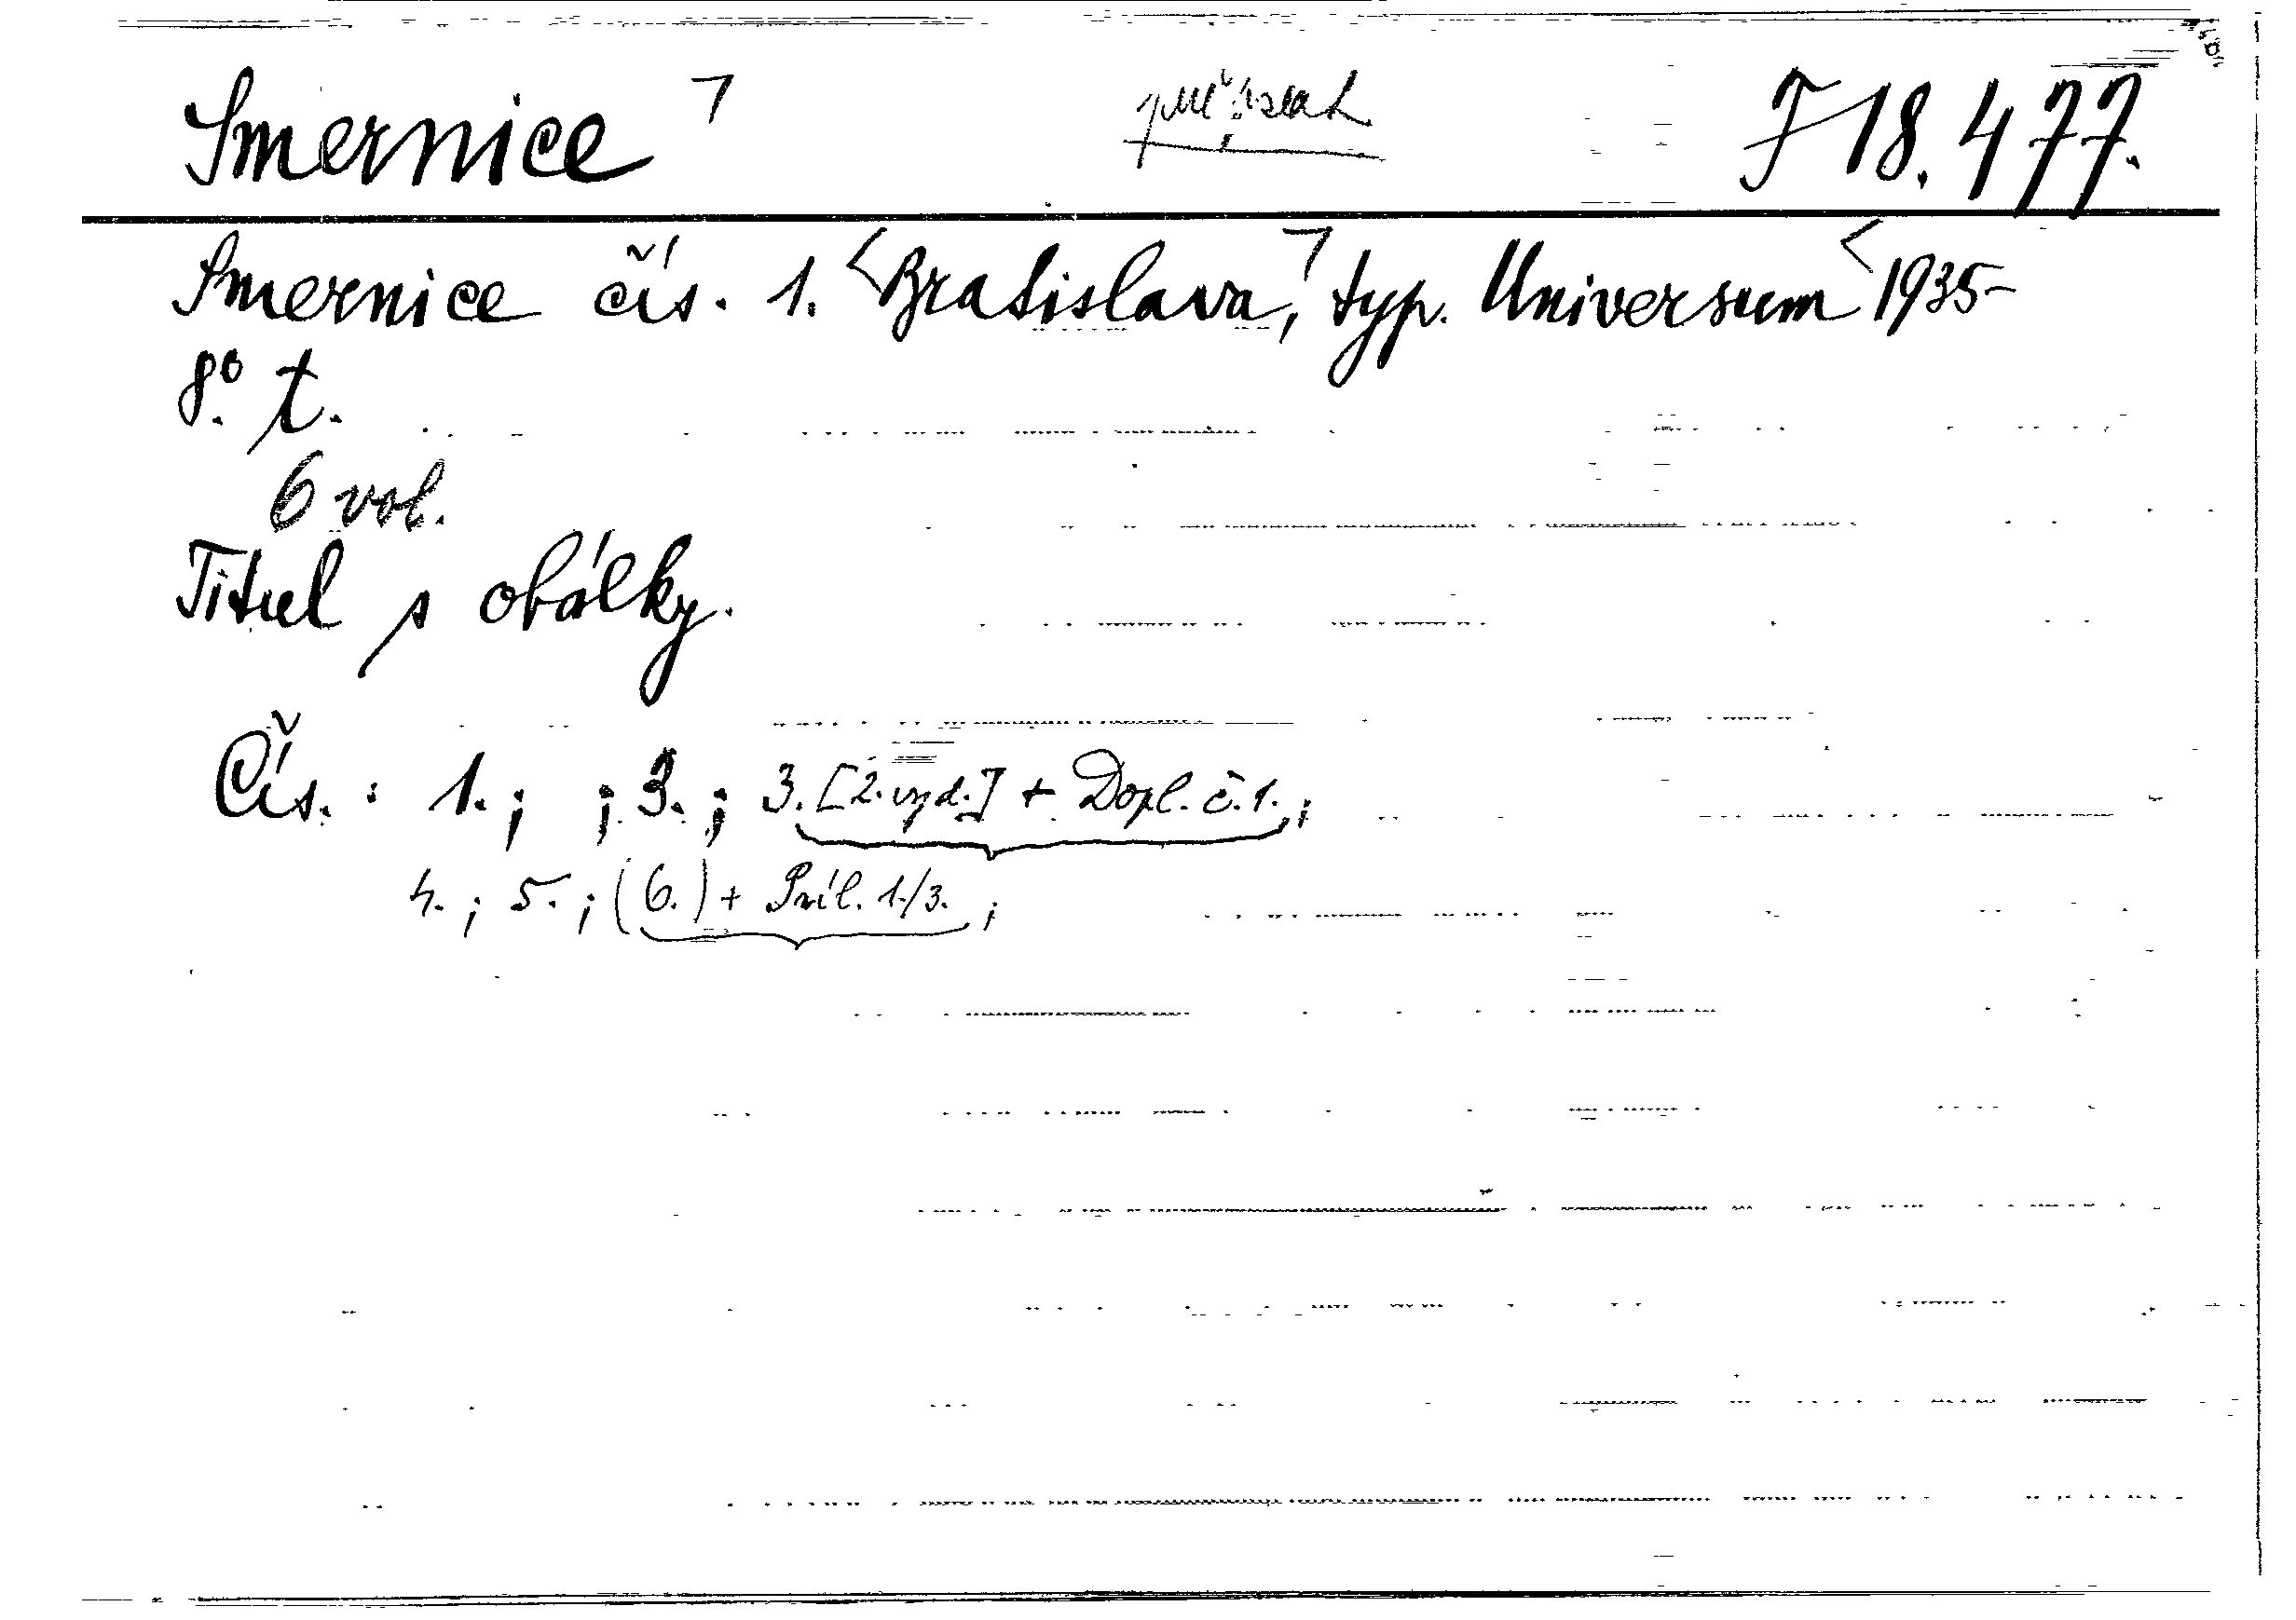 Smernice ⌝ J 18.477.
Smernice čís. 1. <Bratislava,⌝ typ. Universum< 1935-
8.º t.
6 vol.
Titul s obálky.
Čís. : 1. ; ; 3. ; 3. [2. vyd.] + Dopl. č. 1. ;
4. ; 5. ; (6.) + Príl. 1./3. ;